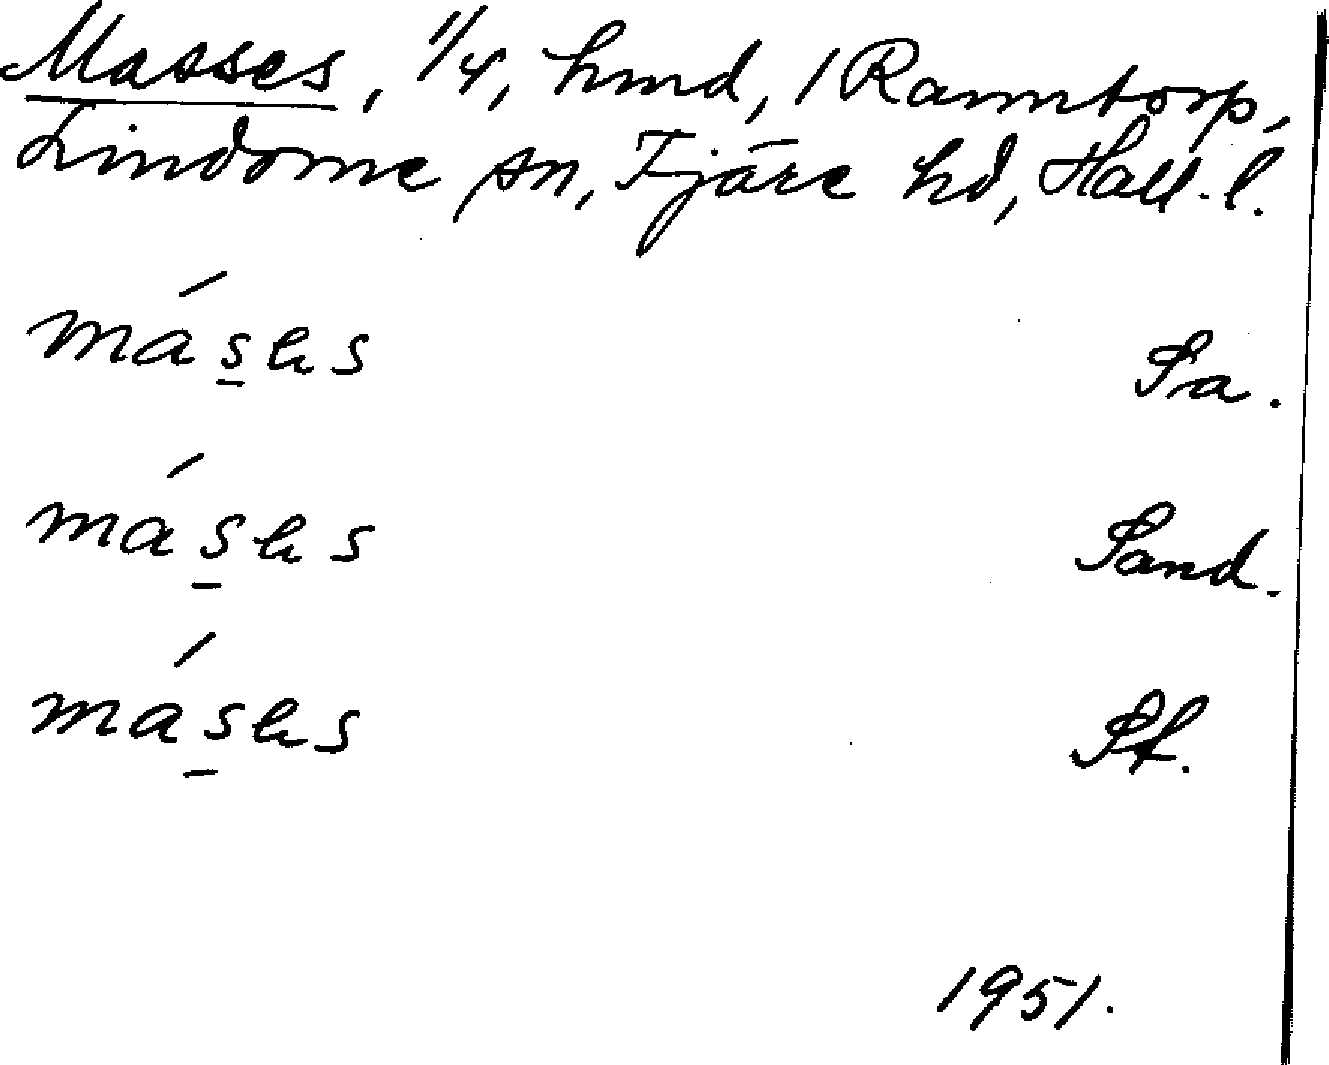 Masses, 1/4, hmd, 1 Ramntorp,
Lindome sn, Fjäre hd, Hall. l.
máses Sa.
máses Sand.
máses Pf.
1951.